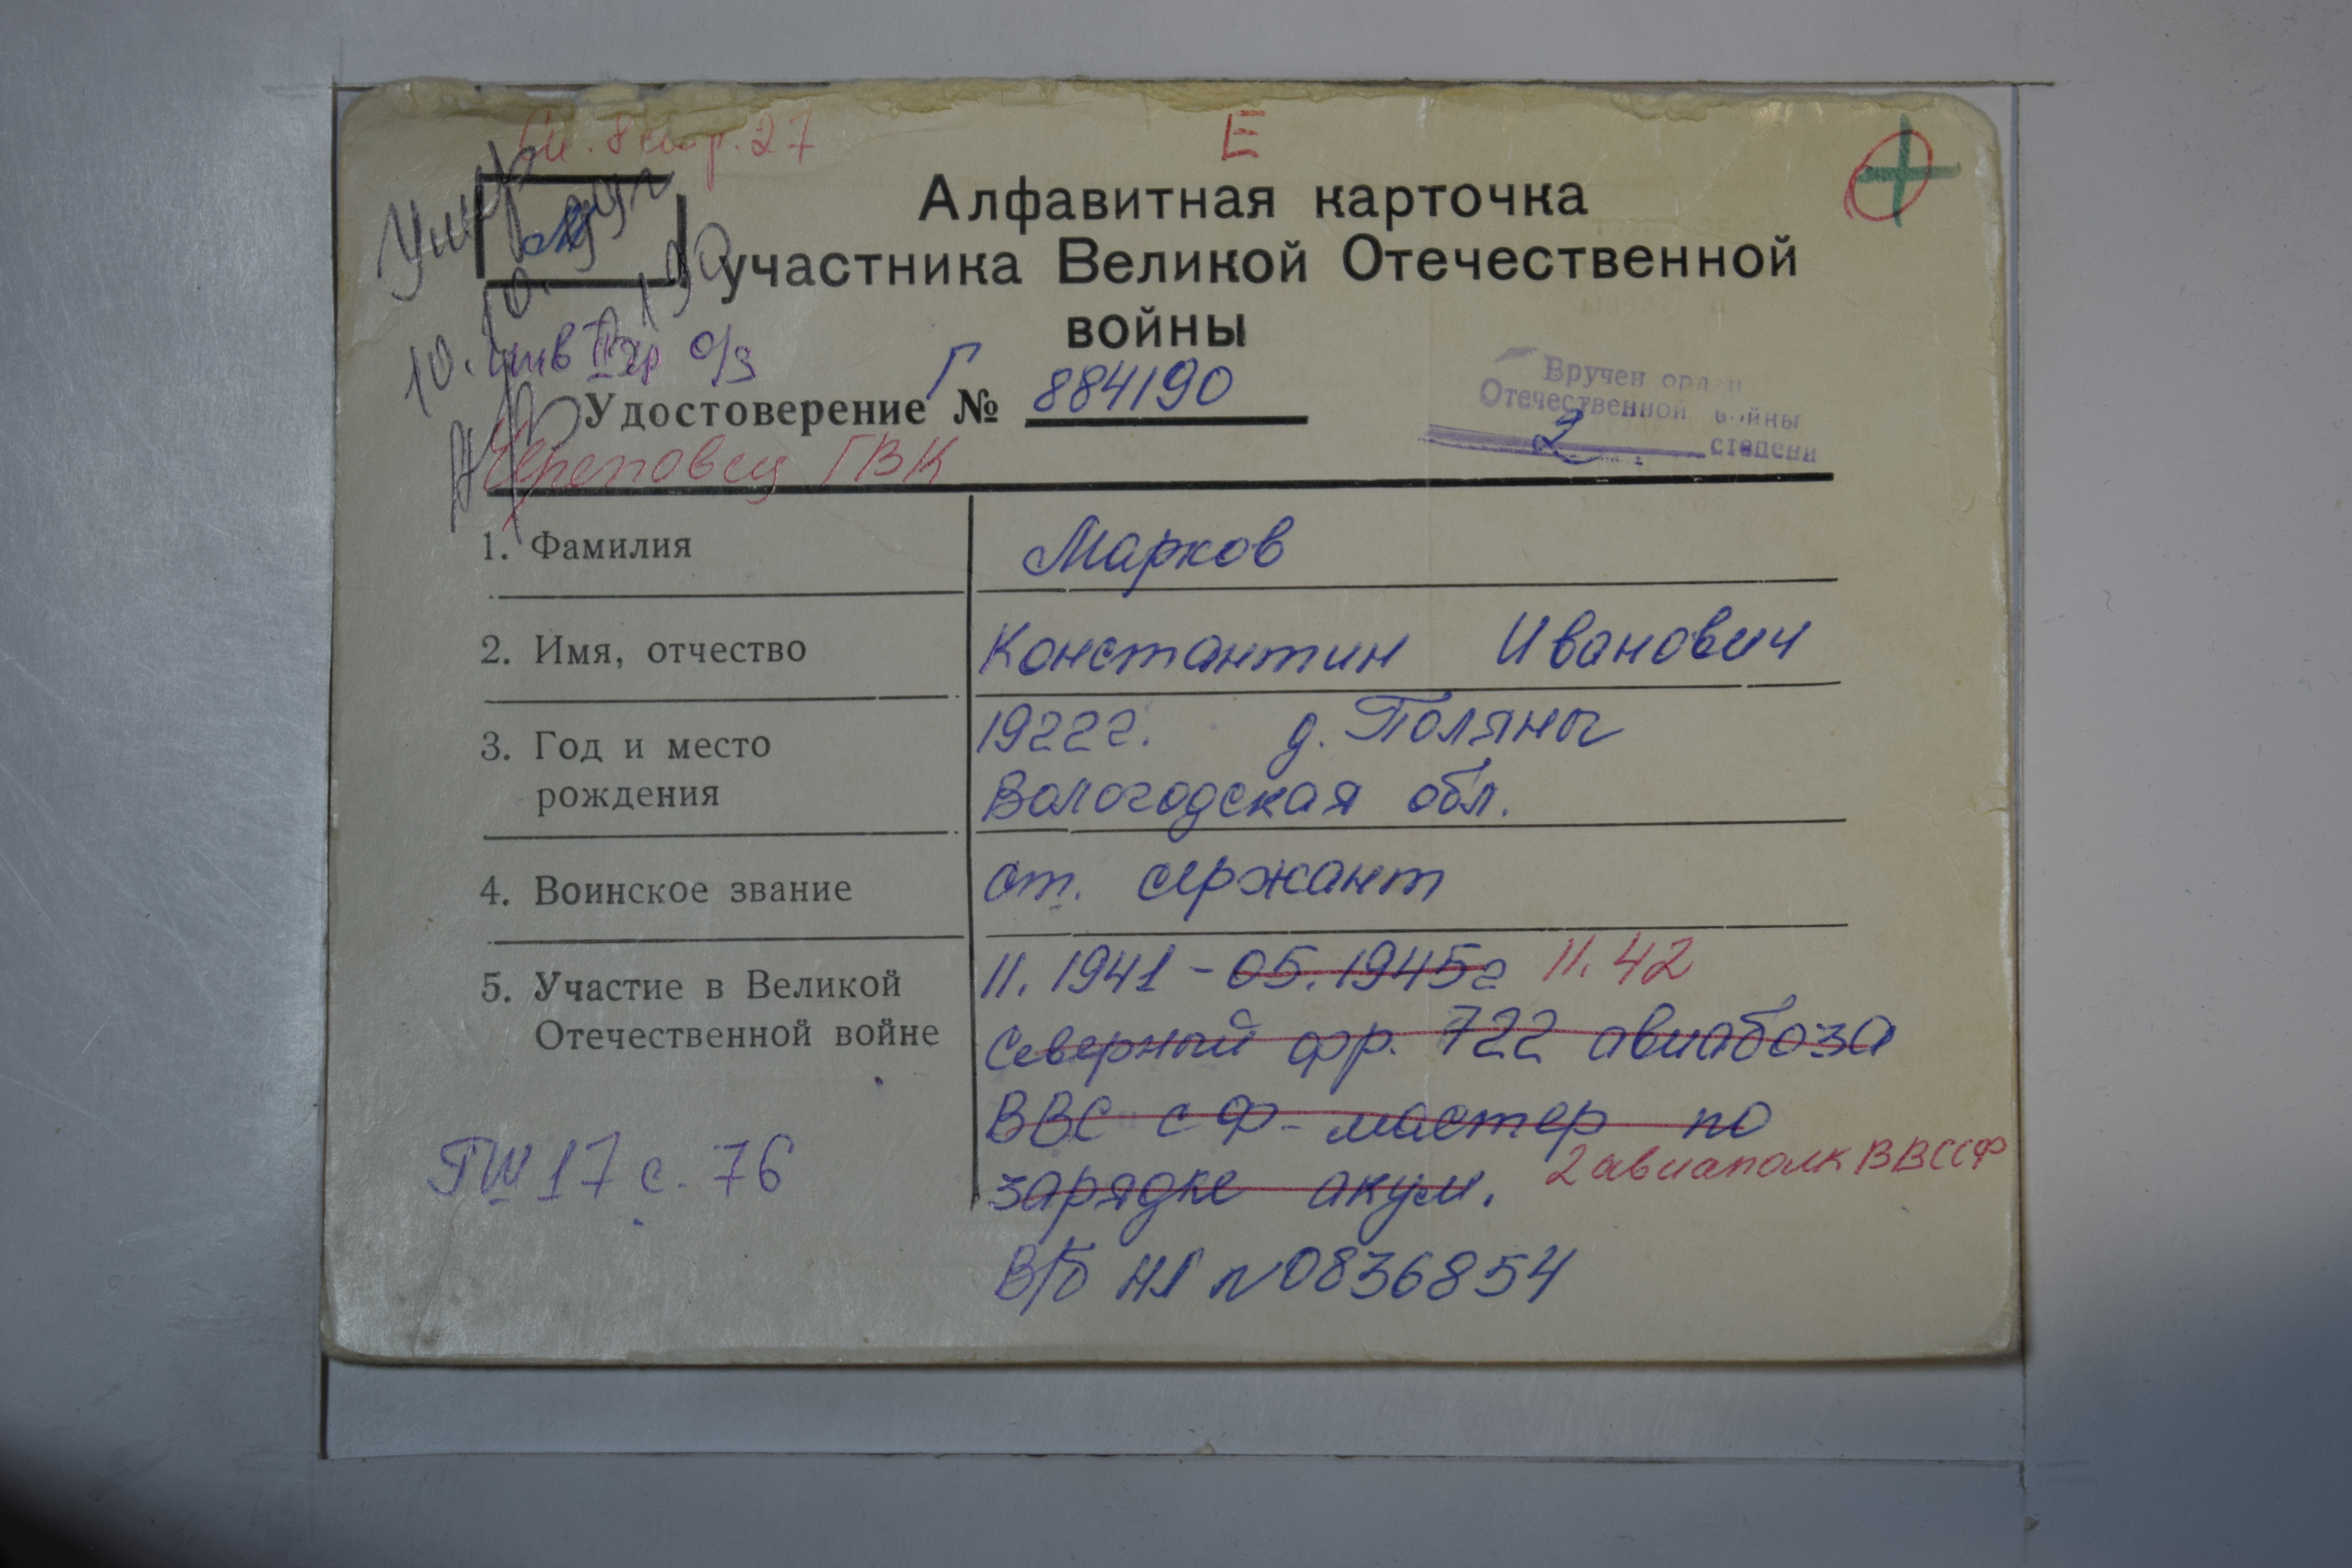 Е
Алфавитная карточка
участника Великой Отечественной
войны
Умер
10.10.
инв II гр о/з
Удостоверение Г № 884190
Вручен орден
Отечественной войны
2 степени
Череповец ГВК
1. Фамилия
Марков
2. Имя, отчество
Константин Иванович
3. Год и место
рождения
1922г. д. Поляны
Вологодская обл.
4. Воинское звание
ст. сержант
5. Участие в Великой
Отечественной войне
11. 1941 - 05. 1945г 11. 42
Северный фр. 722 авиабаза
ВВС СФ - мастер по
зарядке акум. 2 авиаполк ВВССФ
В/Б НI № 0836854
ГШ 17 с. 76